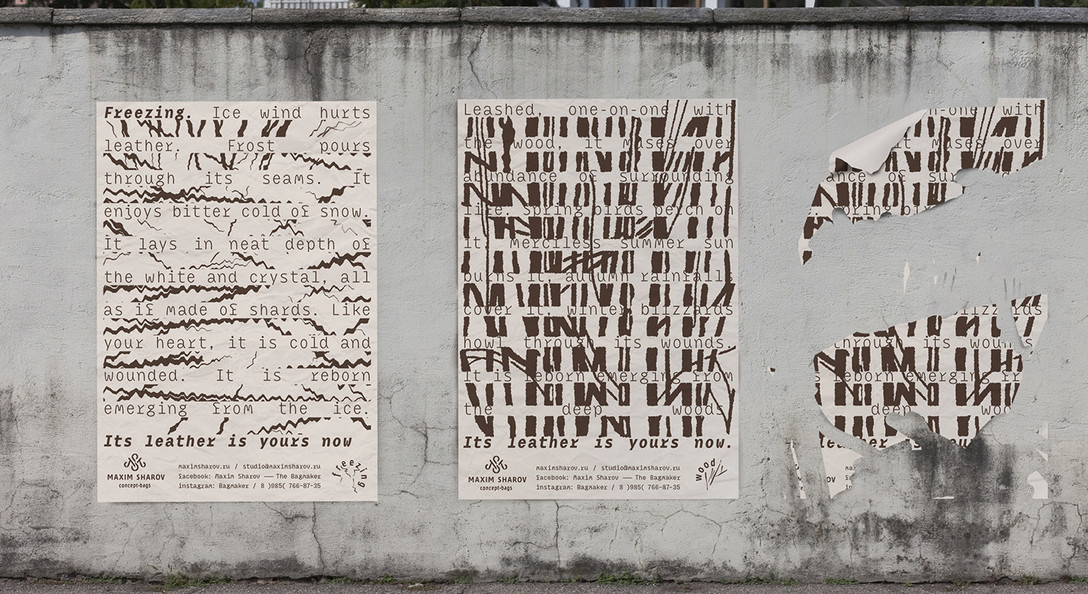 Freezing. Ice wind hurts
leather. Frost pours
through its seams. It
enjoys bitter cold of snow.
It lays in neat depth of
the white and crystal, all
as if made of shards. Like
your heart, it is cold and
wounded. It is reborn
emerging from the ice.
Its leather is yours now
MAXIM SHAROV
concept-bags
maximsharov.ru / studio@maximsharov.ru
facebook: Maxim Sharov — The Bagmaker
instagram: Bagmaker / 8 )985( 766-87-35
freezing
Leashed, one-on-one with
the wood, it muses over
abundance of surrounding
life. Spring birds perch on
it. Merciless summer sun
burns it, autumn rainfalls
cover it, winter blizzards
howl through its wounds.
It is reborn emerging from
the deep woods.
Its leather is yours now.
MAXIM SHAROV
concept-bags
maximsharov.ru / studio@maximsharov.ru
facebook: Maxim Sharov — The Bagmaker
instagram: Bagmaker / 8 )985( 766-87-35
wood
n-one with
es over
nce of sur
ring bi
izzards
through its wounds
s reborn emerging fr
deep woo
leather